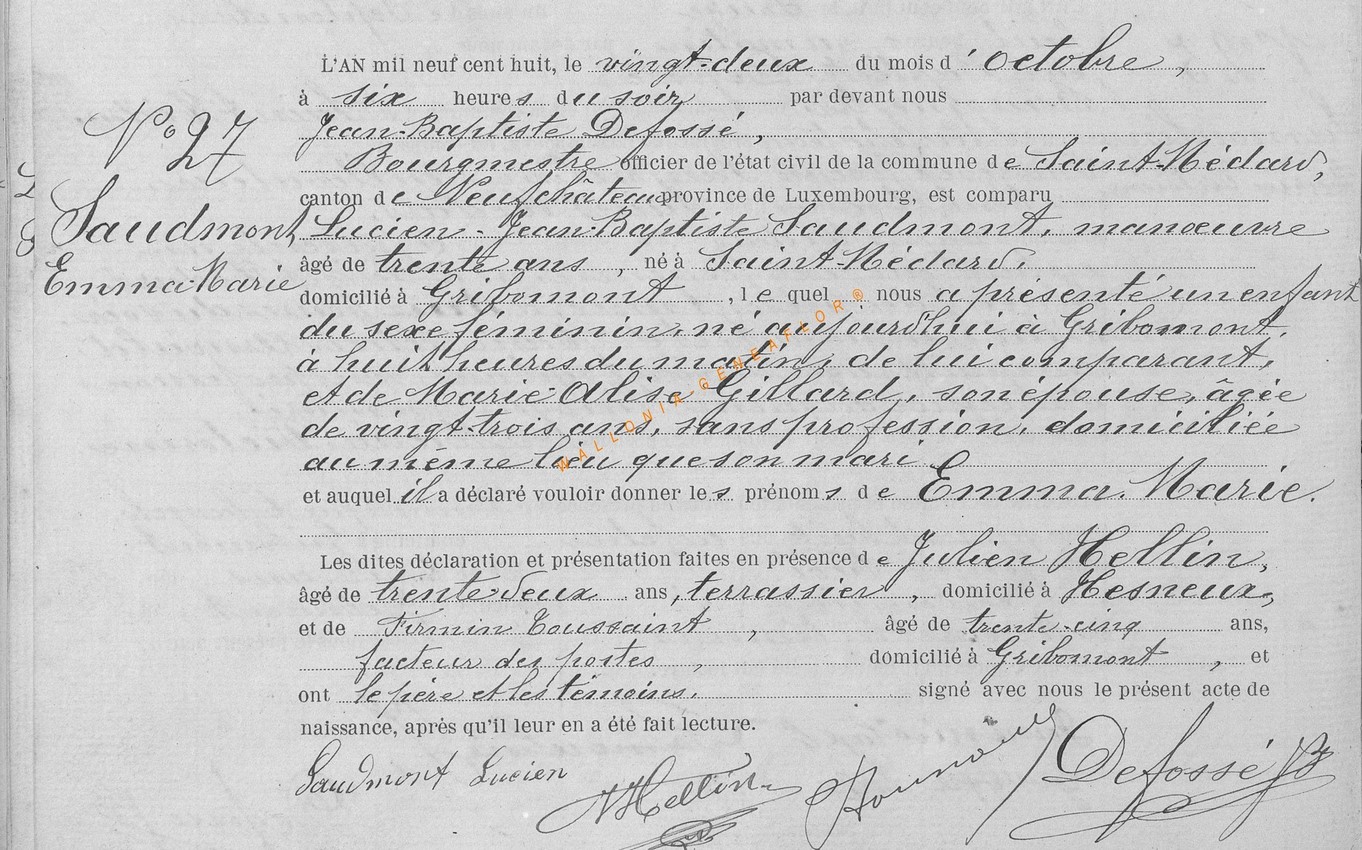 L'AN mil neuf cent huit, le vingt-deux du mois d'octobre,
à six heures du soir par devant nous
Jean-Baptiste Defossé,
Bourgmestre officier de l'état civil de la commune de Saint-Médard,
canton de Neufchâteau province de Luxembourg, est comparu
Lucien-Jean-Baptiste Saudmont, manœuvre
âgé de trente ans, né à Saint-Médard,
domicilié à Gribomont, lequel nous a présenté un enfant
du sexe feminin, né aujourd'hui à Gribomont,
à huit heures du matin, de lui comparant,
et de Marie-Alise Gillard, son épouse, âgée
de vingt-trois ans, sans profession, domiciliée
au même lieu que son mari
et auquel il a déclaré vouloir donner les prénoms de Emma-Marie.
Les dites déclaration et présentation faites en présence de Julien Hellin,
âgé de trente-deux ans, terrassier, domicilié à Mesneux,
et de Firmin Toussaint, âgé de trente-cinq ans,
facteur des postes, domicilié à Gribomont, et
ont le père et les témoins. signé avec nous le présent acte de
naissance, après qu'il leur en a été fait lecture.
Saudmont Lucien Hellin Defossé JB
No 27
Saudmont
Emma-Marie
WALLONIA-GENEAFLOR®